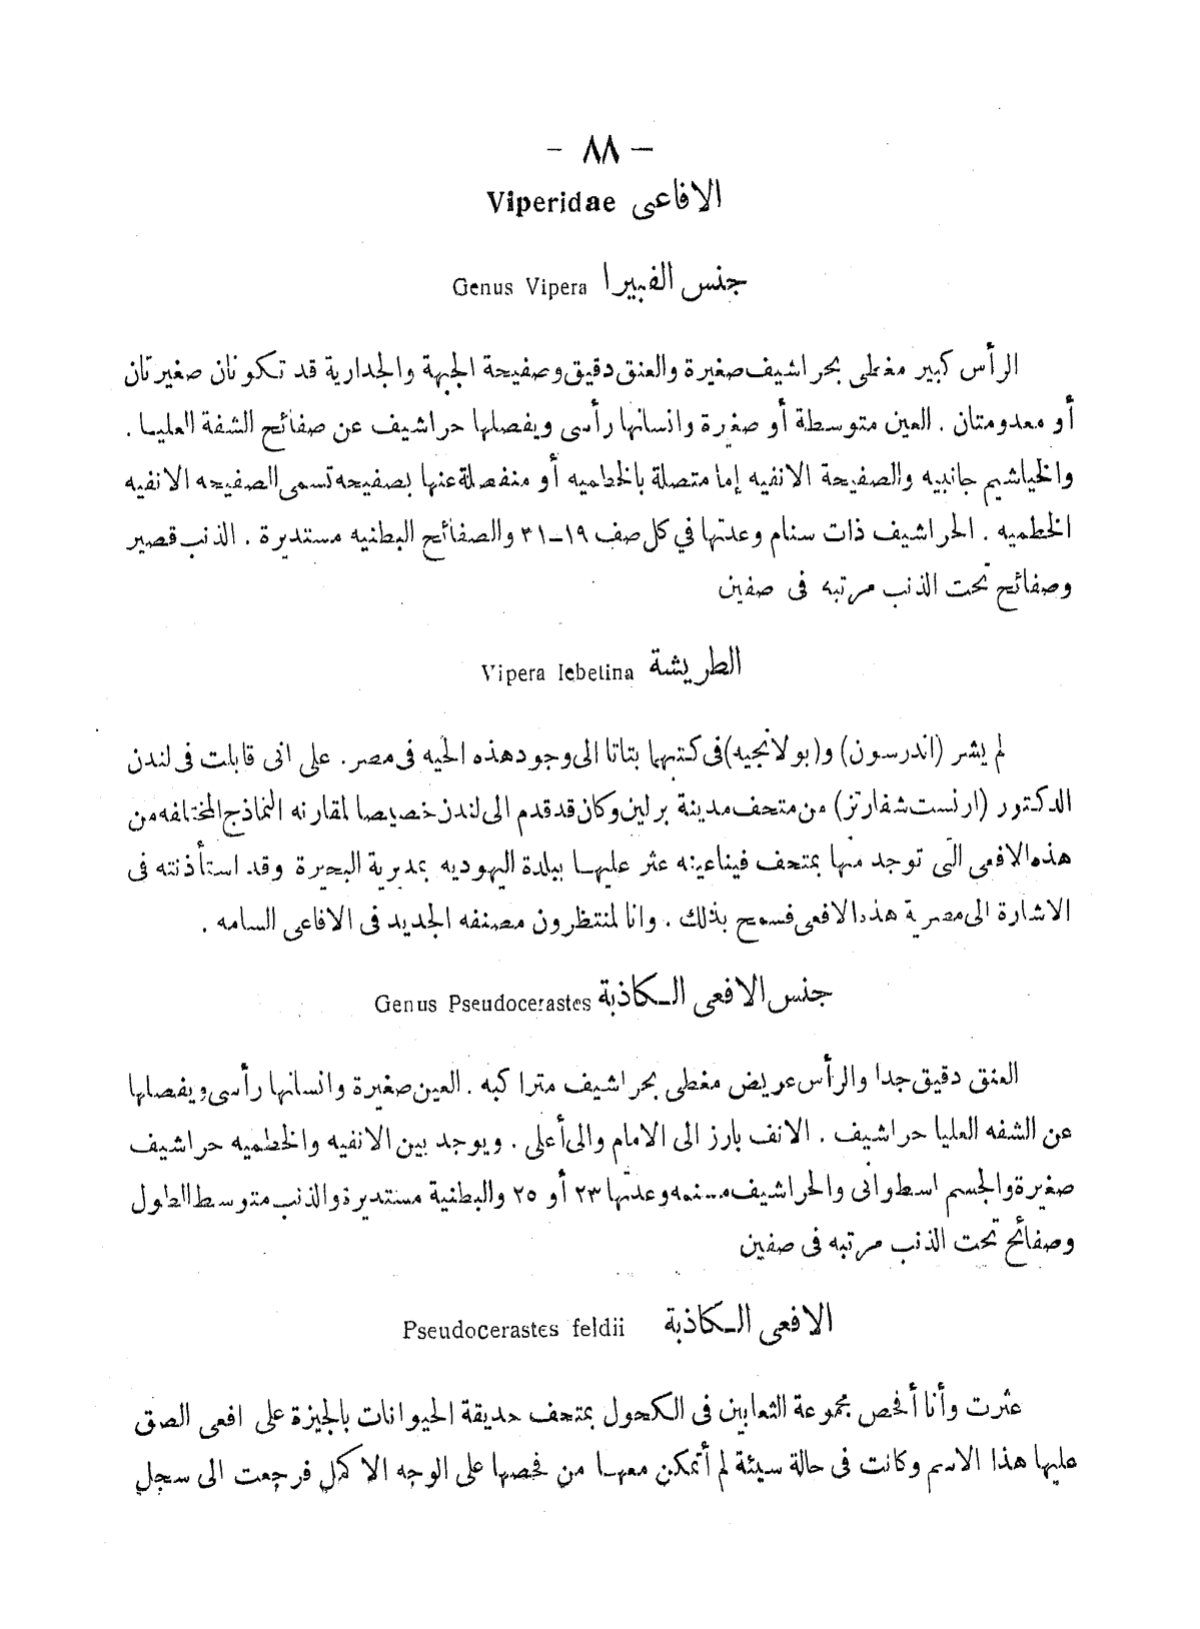 — ٨٨ —
الافاعى Viperidae
جنس الفبيرا Genus Vipera
الرأس كبير مغطى بحراشيف صغيرة والعنق دقيق وصفيحة الجبهة والجدارية قد تكونان صغيرتان
أو معدومتان . العين متوسطة أو صغرة وانسانها رأسى ويفصلها حراشيف عن صفائح الشفة العليا .
والخياشيم جانبيه والصفيحة الانفيه إما متصلة بالخطميه أو منفصلة عنها بصفيحه تسمى الصفيحه الانفيه
الخطميه . الحراشيف ذات سنام وعدتها في كل صف ١٩ــ٣١ والصفائح البطنيه مستديرة . الذنب قصير
وصفائح تحت الذنب مرتبه فى صفين
الطريشة Vipera lebetina
لم يشر (اندرسون) و(بولانجيه) فى كتبهما بتاتا الى وجود هذه الحيه فى مصر. على انى قابلت فى لندن
الدكتور (ارنست شفارتز) من متحف مدينة برلين وكان قد قدم الى لندن خصيصا لمقارنه النماذج المختلفه من
هذه الافعى التى توجد منها بمتحف فينا عينه عثر عليها ببلدة اليهوديه بمديرية البحيرة وقد استأذنته فى
الاشارة الى مصرية هذه الافعى فسمح بذلك . وانا لمنتظرون مصنفه الجديد فى الافاعى السامه .
جنس الافعى الـكاذبة Genus Pseudocerastes
العنق دقيق جدا والرأس عريض مغطى بحراشيف متراكبه . العين صغيرة وانسانها رأسى ويفصلها
عن الشفه العليا حراشيف . الانف بارز الى الامام والى أعلى . ويوجد بين الانفيه والخطميه حراشيف
صغيرة والجسم اسطوانى والحراشيف مسنمه وعدتها ٢٣ أو ٢٥ والبطنية مستديرة والذنب متوسط الطول
وصفائح تحت الذنب مرتبه فى صفين
الافعى الـكاذبة Pseudocerastes feldii
عثرت وأنا أفحص مجموعة الثعابين فى الكحول بمتحف حديقة الحيوانات بالجيزة على افعى الصق
عليها هذا الاسم وكانت فى حالة سيئة لم أتمكن معها من فحصها على الوجه الاكمل فرجعت الى سجل